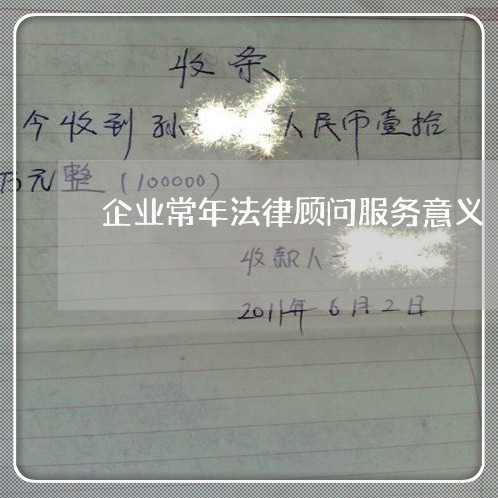 收条
今收到孙 人民币壹拾
万元整(100000)
企业常年法律顾问服务意义
收款人
2011年6月2日